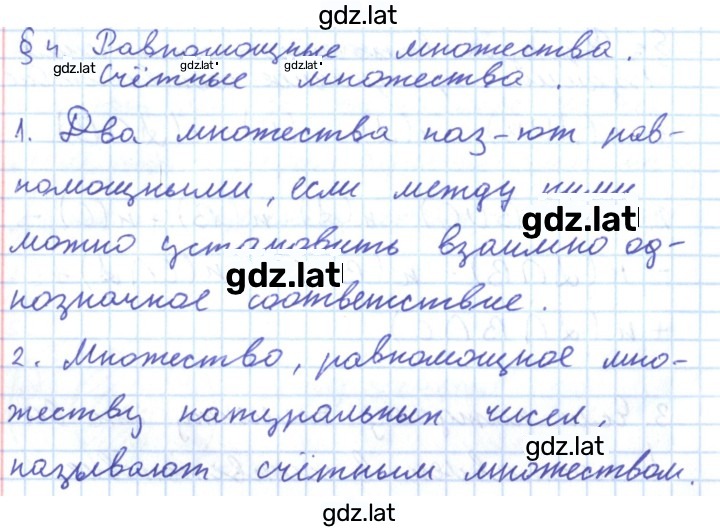 gdz.lat
§ 4 Равномощные множества.
gdz.lat gdz.lat gdz.lat
Счётные множества.
1. Два множества наз-ют рав-
номощными, если между ними
gdz.lat
можно установить взаимно од-
gdz.lat
нозначное соответствие.
2. Множество, равномощное мно-
жеству натуральных чисел,
gdz.lat
называют счётным множеством.
gdz.lat